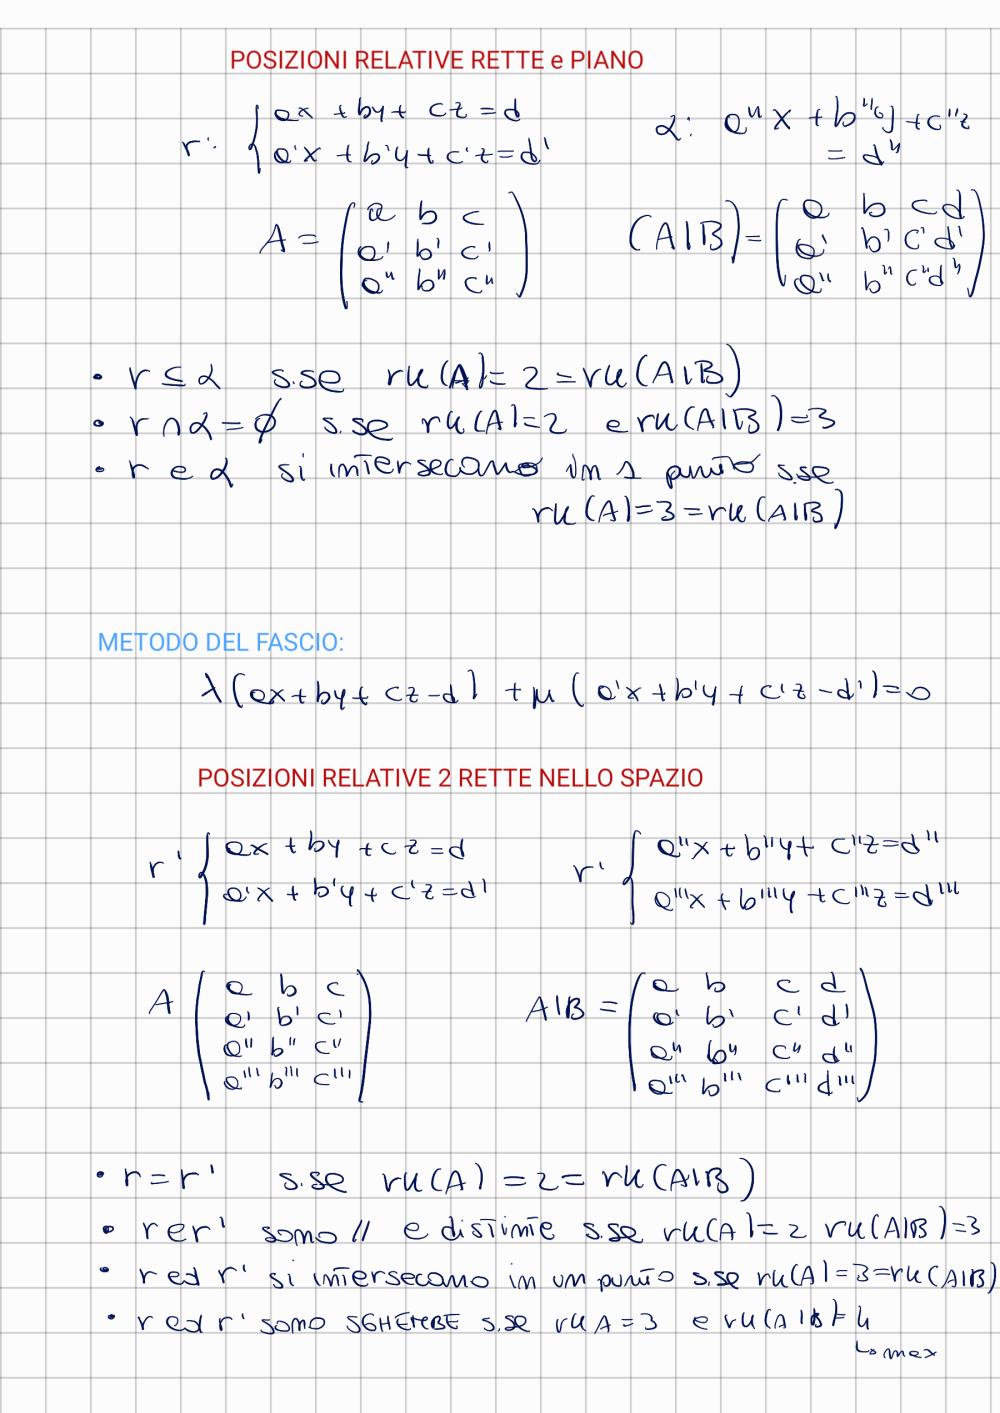 POSIZIONI RELATIVE RETTE e PIANO
r: { ax + by + cz = d
a'x + b'y + c'z = d'
α: a"x + b"y + c"z
= d"
A = ( a b c
a' b' c'
a" b" c" )
(A|B) = ( a b c d
a' b' c' d'
a" b" c" d" )
• r ⊆ α s.se rk(A) = 2 = rk(A|B)
• r ∩ α = ∅ s.se rk(A) = 2 e rk(A|B) = 3
• r e α si intersecano in 1 punto s.se
rk(A) = 3 = rk(A|B)
METODO DEL FASCIO:
λ(ax + by + cz - d) + μ(a'x + b'y + c'z - d') = 0
POSIZIONI RELATIVE 2 RETTE NELLO SPAZIO
r' { ax + by + cz = d
a'x + b'y + c'z = d'
r' { a"x + b"y + c"z = d"
a'''x + b'''y + c'''z = d'''
A ( a b c
a' b' c'
a" b" c"
a''' b''' c''' )
A|B = ( a b c d
a' b' c' d'
a" b" c" d"
a''' b''' c''' d''' )
• r = r' s.se rk(A) = 2 = rk(A|B)
• r e r' sono // e distinte s.se rk(A) = 2 rk(A|B) = 3
• r ed r' si intersecano in un punto s.se rk(A) = 3 = rk(A|B)
• r ed r' sono SGHEMBE s.se rk A = 3 e rk(A|B) = 4
↳ max